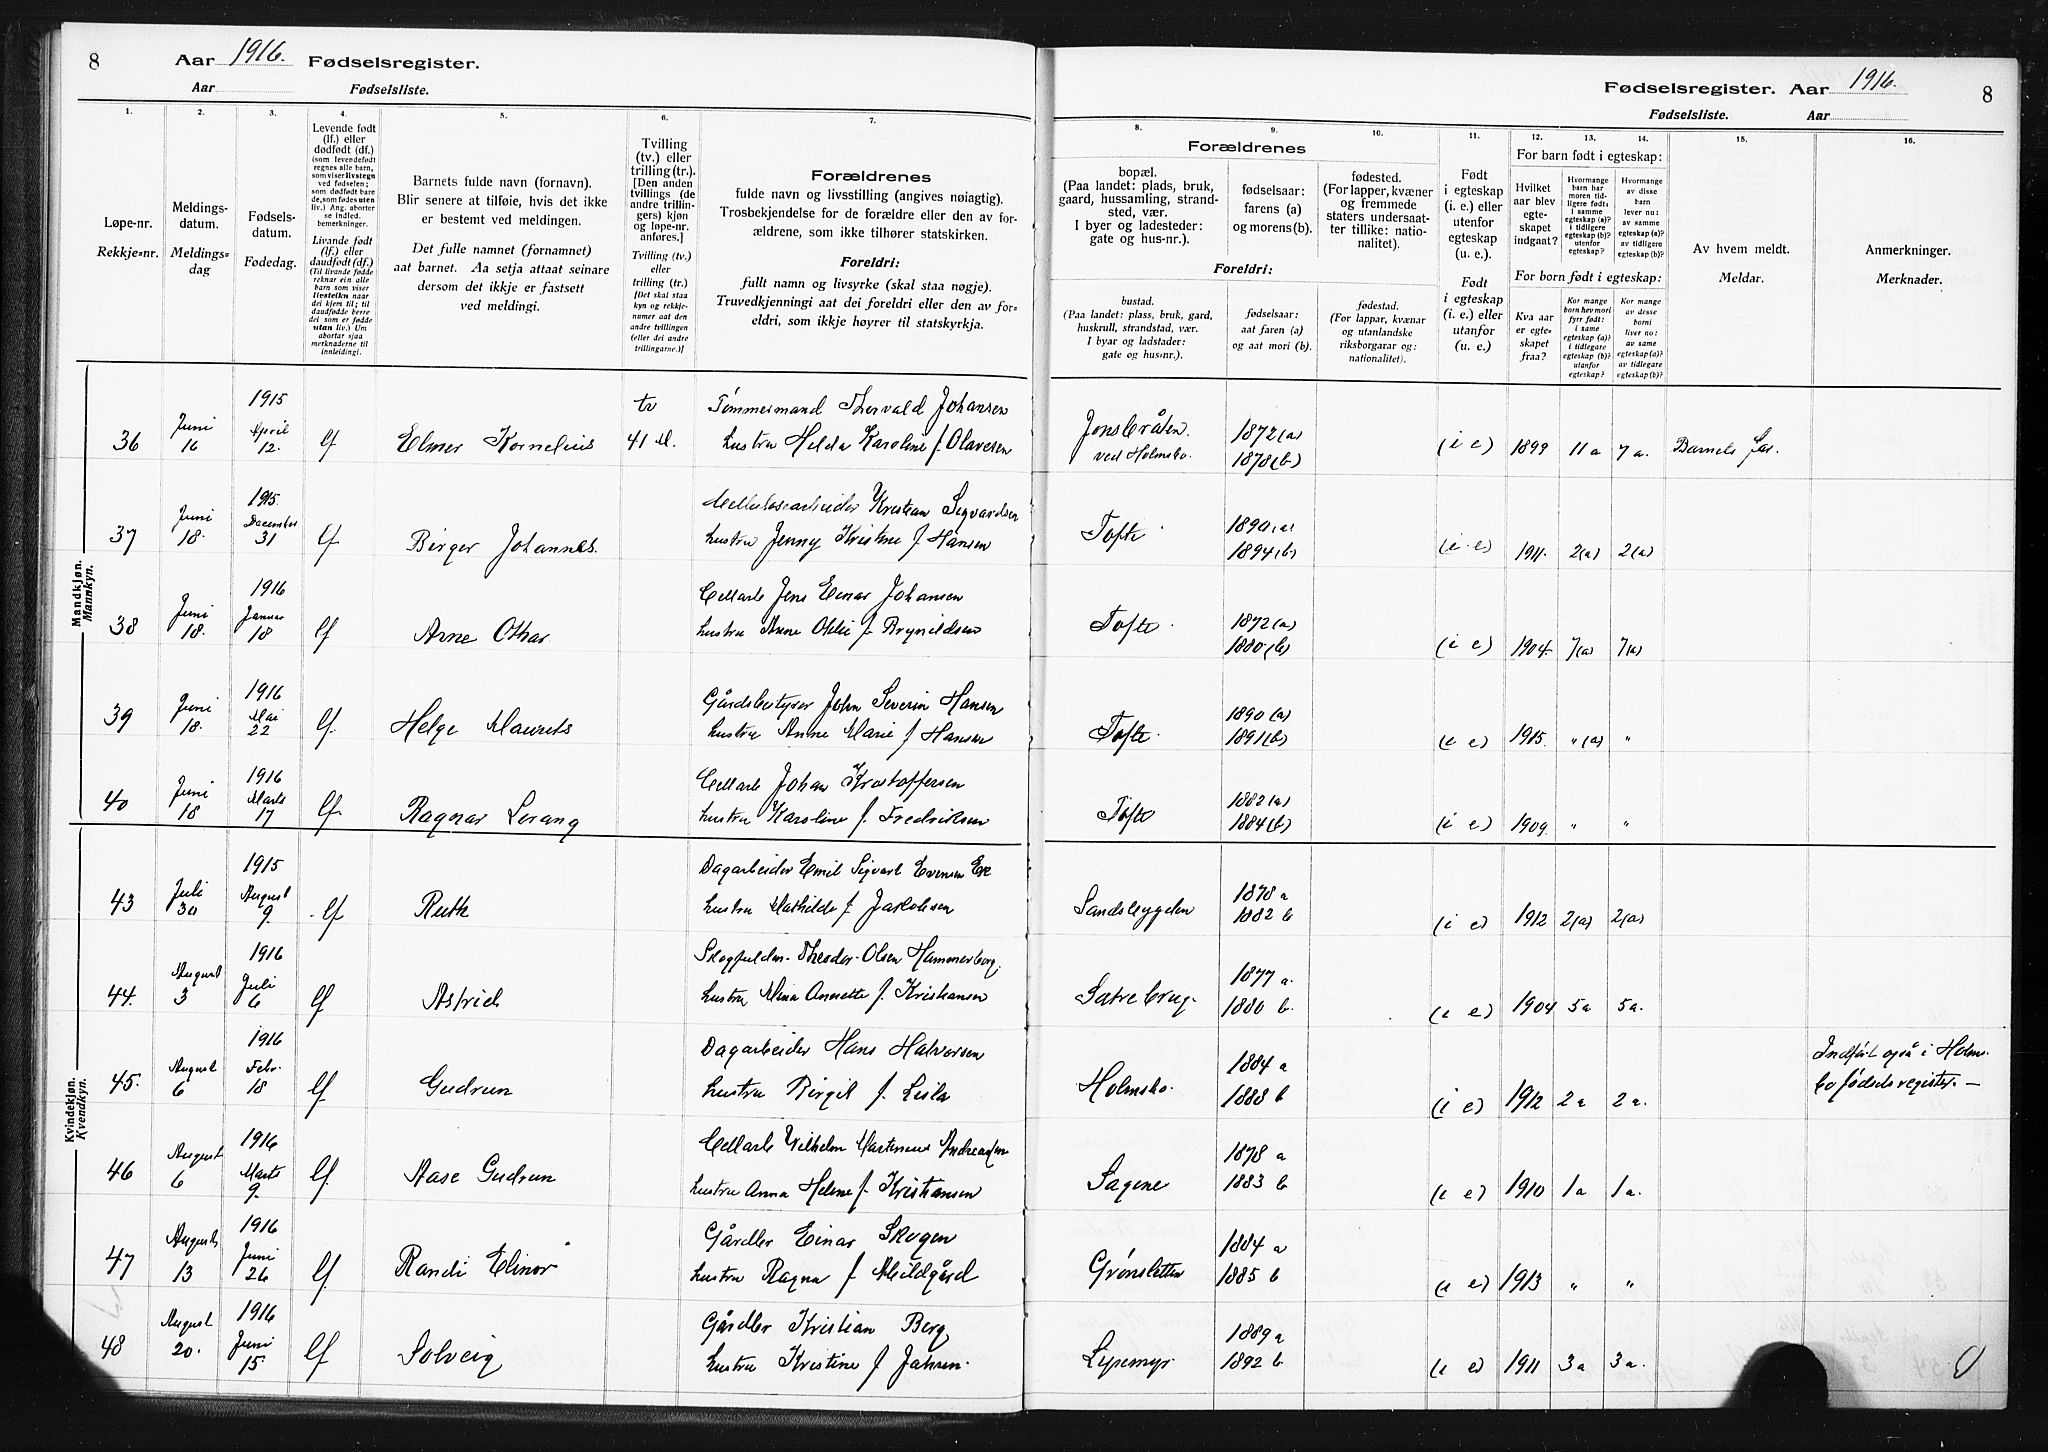 8
Aar 1916. Fødselsregister.
Aar Fødselsliste.
1.
2.
3.
4.
5.
6.
7.
Løpe-nr.
Rekkje-nr.
Meldings-
datum.
Meldings-
dag
Fødsels-
datum.
Fødedag.
Levende født
(lf.) eller
dødfødt (df.)
(som levendefødt
regnes alle barn,
som viser livstegn
ved fødselen;
som dødfødt bare
de, som fødes uten
liv.) Ang. aborter
se indled.
bemerkninger.
Livande født
(lf.) eller
daudfødt (df.)
(Til livande fødde
reknar ein alle
barn som viser
livsteikn naar
dei kjem til; til
daudfødde berre
dei som er fødde
utan liv.) Um
abortar sjaa
merknaderne til
innleidingi.
Barnets fulde navn (fornavn).
Blir senere at tilføie, hvis det ikke
er bestemt ved meldingen.
Det fulle namnet (fornamnet)
aat barnet. Aa setja attaat seinare
dersom det ikkje er fastsett
ved meldingi.
Tvilling
(tv.) eller
trilling (tr.).
[Den anden
tvillings (de
andre trillin-
gers) kjøn
og løpe-nr.
anføres.]
Tvilling (tv.)
eller
trilling (tr.)
[Det skal staa
kyn og rekkje-
numer aat den
andre tvillingen
(eller dei andre
trillingarne.)]
Forældrenes
fulde navn og livsstilling (angives nøiagtig).
Trosbekjendelse for de forældre eller den av for-
ældrene, som ikke tilhører statskirken.
Foreldri:
fullt namn og livsyrke (skal staa nøgje).
Truvedkjenningi aat dei foreldri eller den av for-
eldri, som ikkje høyrer til statskyrkja.
Mandkjøn.
Mannkyn.
36 Juni 16 1915 April 12. lf Elmer Kornelius tv 41 M. Tømmermand Thorvald Johansen
hustru Helda Karoline f. Olavesen
37 Juni 18. 1915. December 31 lf Birger Johannes. Kristian Sigvardsen
hustru Jenny Kristine f. Hansen
38 Juni 18. 1916 Januar 18 lf Arne Othar Cellarb Jens Einar Johansen
hustru Anne Otilie f. Brynildsen
39 Juni 18. 1916 Mai 22 lf. Helge Maurits Gårdsbestyrer John Severin Hansen
hustru Anne Marie f. Hansen
40 Juni 18 1916 Marts 17 lf. Ragnar Lorang Cellarb Johan Kristoffersen
hustru Karoline f. Fredriksen
Kvindekjøn.
Kvendkyn.
43 Juli 30 1915 August 9. lf Ruth Dagarbeider Emil Sigvart Evensen
hustru Mathilde f. Jakobsen
44. August 3 1916 Juli 6 lf Astrid Theodor Olsen Hammerborg.
hustru Mina Annette f. Kristiansen
45. August 6 1916 Febr. 18 lf Gudrun Dagarbeider Hans Halvorsen
hustru Birgit f. Leila
46 August 6 1916 Marts 9. lf. Aase Gudrun Cellarb Vilhelm Martinius Andreasen
hustru Anna Helene f. Kristiansen
47 August 13 1916 Juni 26 lf Randi Elinor Gårdbr Einar Skogen
hustru Ragna f. Mildgård
48 August 20. 1916 Juni 15. lf Solveig Gårdbr Kristian Berg
hustru Kristine f. Jahren.
Fødselsregister. Aar 1916. 8
Fødselsliste. Aar
8.
9.
10.
11.
12.
13.
14.
15.
16.
Forældrenes
bopæl.
(Paa landet: plads, bruk,
gaard, hussamling, strand-
sted, vær.
I byer og ladesteder:
gate og hus-nr.).
fødselsaar:
farens (a)
og morens (b).
fødested.
(For lapper, kvæner
og fremmede
staters undersaat-
ter tillike: natio-
nalitet).
Foreldri:
bustad.
(Paa landet: plass, bruk, gard,
huskrull, strandstad, vær.
I byar og ladstader:
gate og hus-nr.).
fødselsaar:
aat faren (a)
og aat mori (b).
fødestad.
(For lappar, kvænar
og utanlandske
riksborgarar og:
nationalitet).
Født
i egteskap
(i. e.) eller
utenfor
egteskap
(u. e.).
Født
i egteskap
(i. e.) eller
utanfor
(u. e.).
For barn født i egteskap:
Hvilket
aar blev
egte-
skapet
indgaat?
Hvormange
barn har
moren tid-
ligere født:
i samme
egteskap (a)?
i tidligere
egteskap (b)?
utenfor
egteskap?
Hvormange
av disse
barn
lever nu:
av samme
egteskap (a)?
av tidligere
egteskap (b)?
For born født i egteskap:
Kva aar
er egte-
skapet
fraa?
Kor mange
born hev mori
fyrr født:
i same
egteskap (a)?
i tidlegare
egteskap (b)?
utanfor
egteskap?
Kor mange
av desse
borni
liver no:
av same
egteskap (a)?
av tidlegare
egteskap (b)?
Av hvem meldt.
Meldar.
Anmerkninger.
Merknader.
Jonsbråten. ved Holmsbo. 1872 (a) 1878 (b) (i e) 1899 11 a 7 a. Barnets far.
Tofte 1890 (a) 1894 (b) (i e) 1911. 2(a) 2(a)
Tofte 1872 (a) 1880 (b) (i e) 1904. 7(a) 7(a)
Tofte 1890 (a) 1891 (b) (i e) 1915. " (a) "
Tofte 1882 (a) 1884 (b) (i e) 1909. " "
Sandsbygden 1878 a 1882 b (i e) 1912 2(a) 2(a)
Sætre brug. 1877 a. 1880 b. (i e) 1904 5a 5a.
Holmsbo. 1884 a 1888 b (i e) 1912 2 a 2 a. Indført også i Holms-
bo fødselsregister. —
Sagene 1878 a 1883 b (i e) 1910 1 a 1 a.
Grønsletten 1884 a 1885 b (i e) 1913 " "
Lysemyr 1889 a 1892 b (i e) 1911 3 a 3 a.